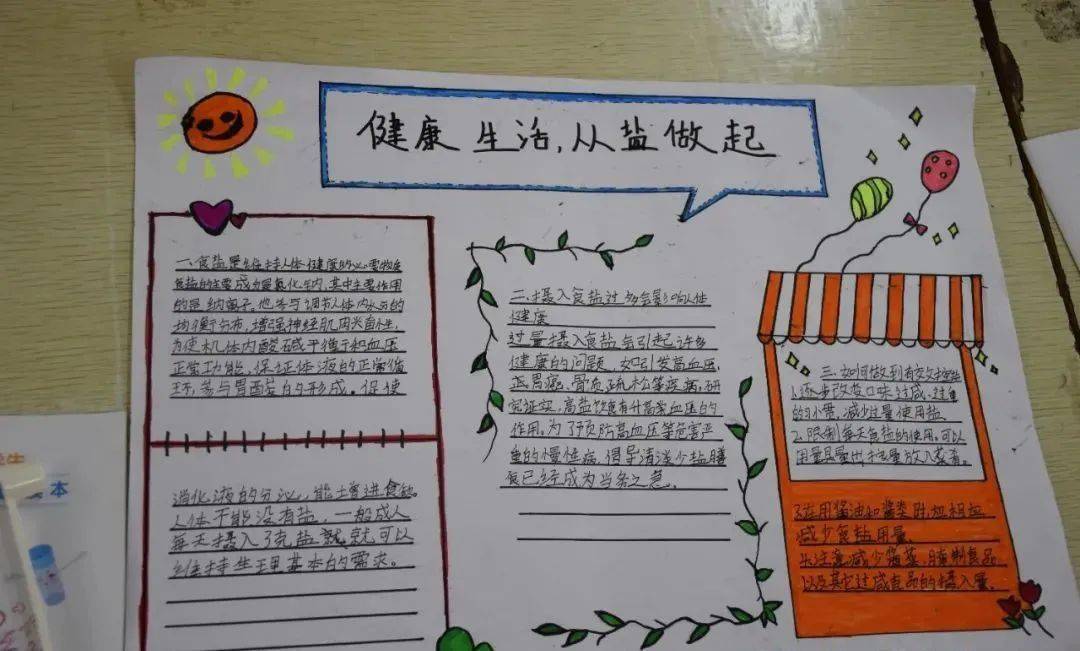 健康生活,从盐做起
一、食盐是维持人体健康的必需物质
食盐的主要成分是氯化钠,其中主要作用
的是钠离子。也参与调节人体内水分的
均衡分布,增强神经肌肉兴奋性,
为使机体内酸碱平衡和血压
正常功能,保证体液的正常循
环,参与胃酸的形成。促使
消化液的分泌,能增进食欲。
人体不能没有盐,一般成人
每天摄入3克盐就就可以
维持生理基本的需求。
二、摄入食盐过多会影响人体
健康
过量摄入食盐会引起许多
健康的问题,如引发高血压,
胃癌,骨质疏松等疾病,研
究证实,高盐饮食有升高血压的
作用。为了预防高血压等危害严
重的慢性病,倡导清淡少盐膳
食已经成为当务之急。
三、如何做到有效控盐
1、逐步改变口味过咸、过重
的习惯,减少过量使用盐
2、限制每天食盐的使用。可以
用量具量出,控量放入菜肴。
3、在用酱油和酱类时,应相应
减少食盐用量。
4、注意减少酱菜、腌制食品
以及其它过咸食品的摄入量。
本